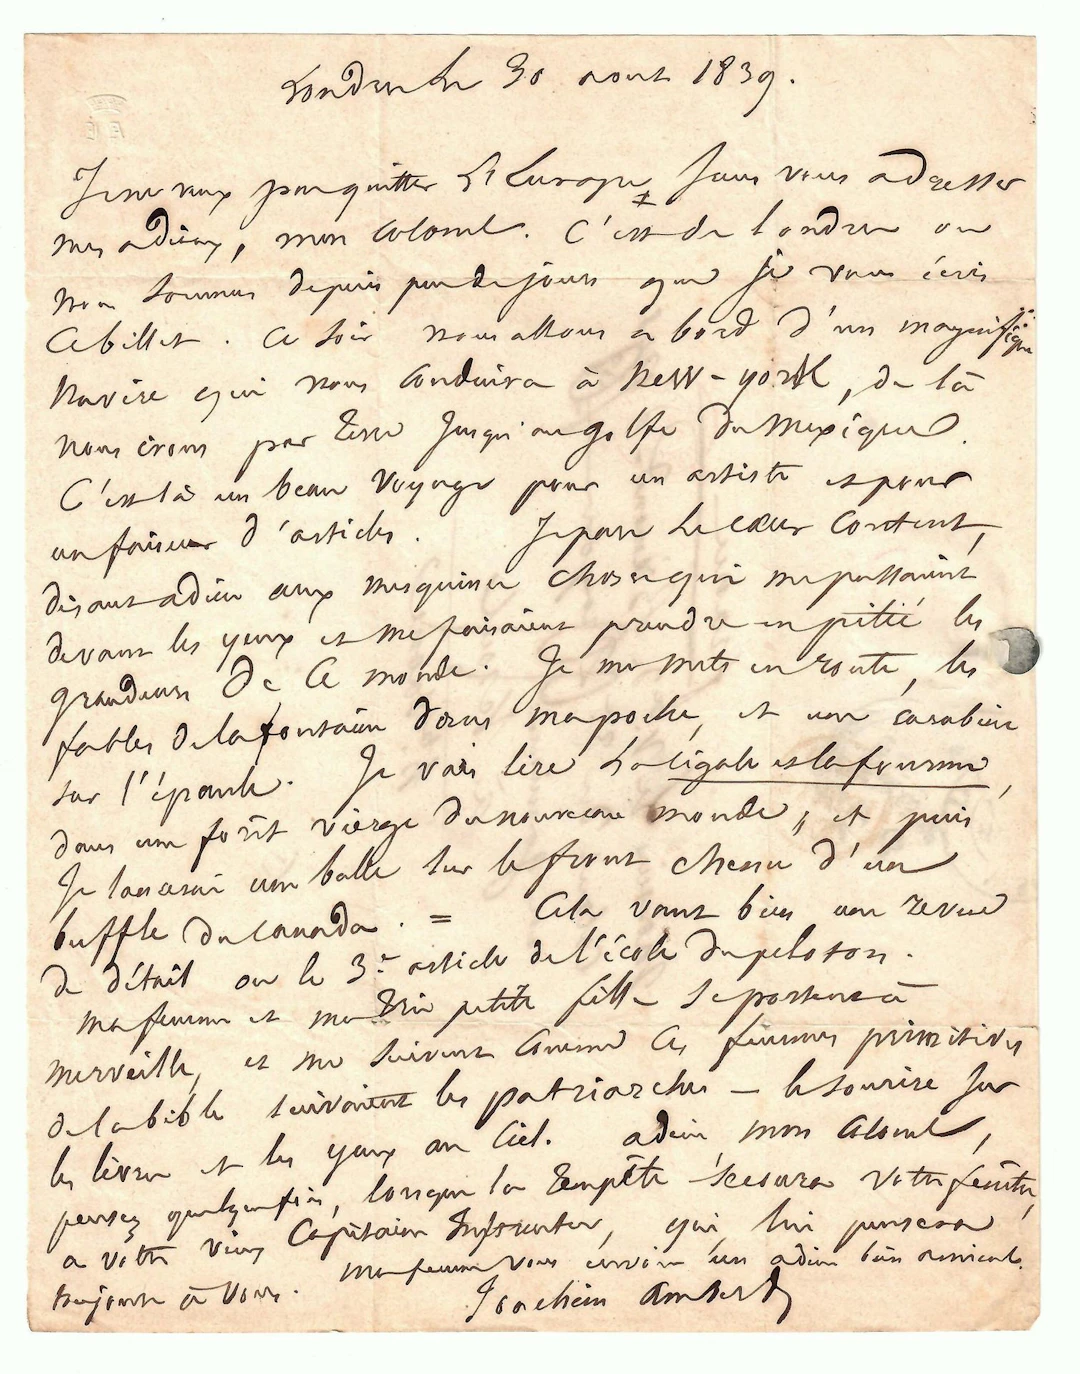 Londres le 30 aout 1839.
Je ne veux pas quitter L'Europe sans vous adresser
mes adieux, mon colonel. C'est de Londres ou
nous sommes depuis peu de jours que je vous écris
ce billet. Ce soir nous allons a bord d'un magnifique
Navire qui nous conduira à New-york, de là
nous irons par terre jusqu'au golfe du Mexique.
C'est là un beau voyage pour un artiste et pour
un faiseur d'articles. Je pars le cœur content,
disant adieu aux mesquines choses qui me passaient
devant les yeux et me faisaient prendre en pitié les
grandeurs de ce monde. Je me mets en route, les
fables de la fontaine dans ma poche, et une carabine
sur l'épaule. Je vais lire La cigale et la fourmi,
dans une forêt vierge du nouveau monde, et puis
je lancerai une balle sur le front chenu d'un
buffle du Canada. = Cela vaut bien une revue
de détail ou le 3e article de l'école du peloton.
Ma femme et ma petite fille se portent à
merveille, et me suivent comme ces femmes primitives
de la bible suivaient les patriarches — le sourire sur
les lèvres et les yeux au Ciel. adieu mon colonel,
pensez quelquefois, lorsque la tempête votre fenêtre,
a votre vieux Capitaine, qui lui pensera
toujours à vous. Ma femme vous envoie un adieu bien amical.
Joachim Ambert